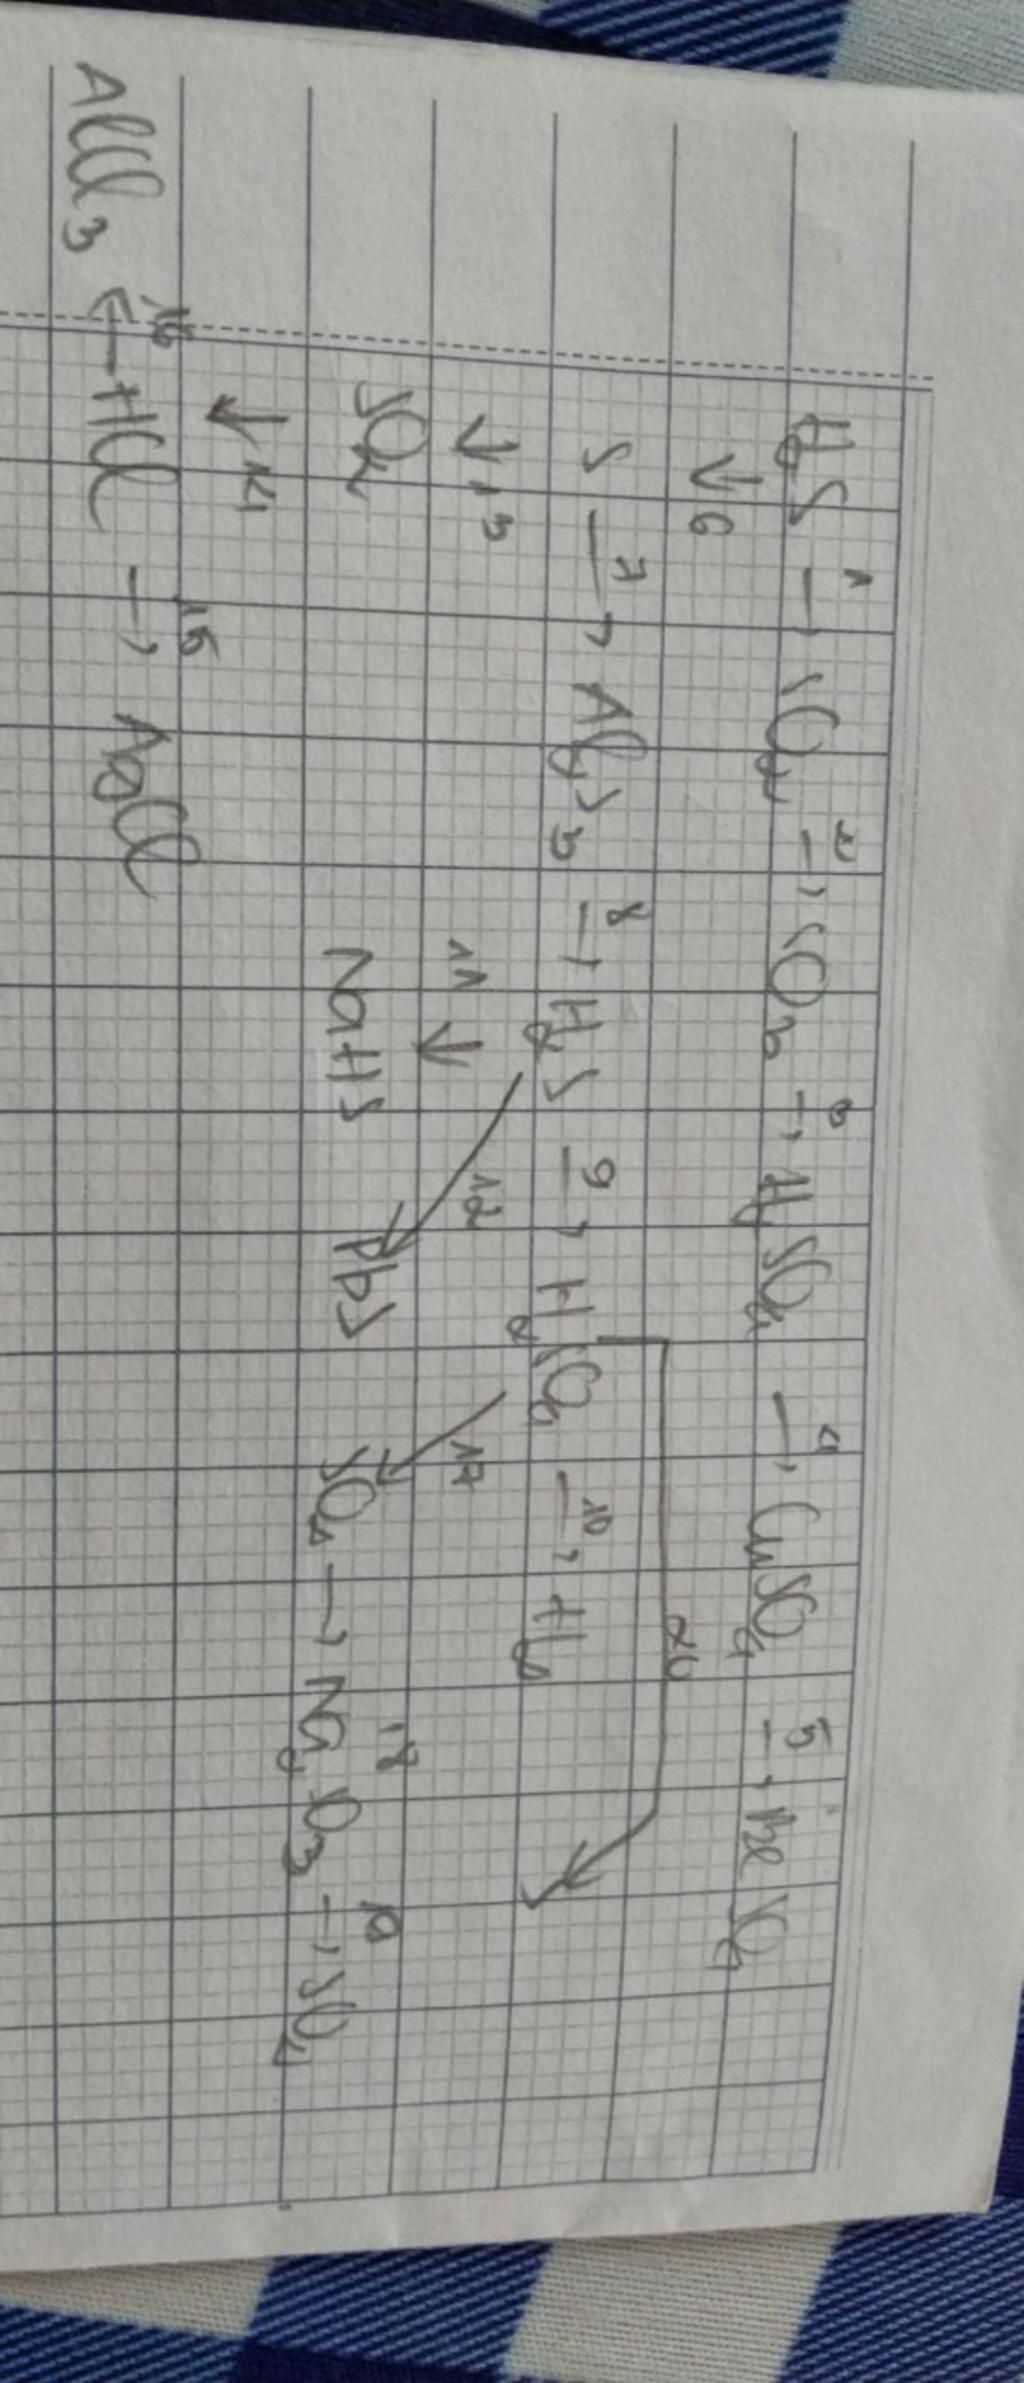 H2S —1→ SO2 —2→ SO3 —3→ H2SO4 —4→ CuSO4 —5→ SO4
↓6 20
S —7→ Al2S3 —8→ H2S —9→ H2SO4 —10→ H2 S
↓13 11↓ 12 17
SO2 NaHS PbS SO2 → Na2SO3 —19→ SO2
18
↓14
AlCl3 ←16— HCl —15→ NaCl